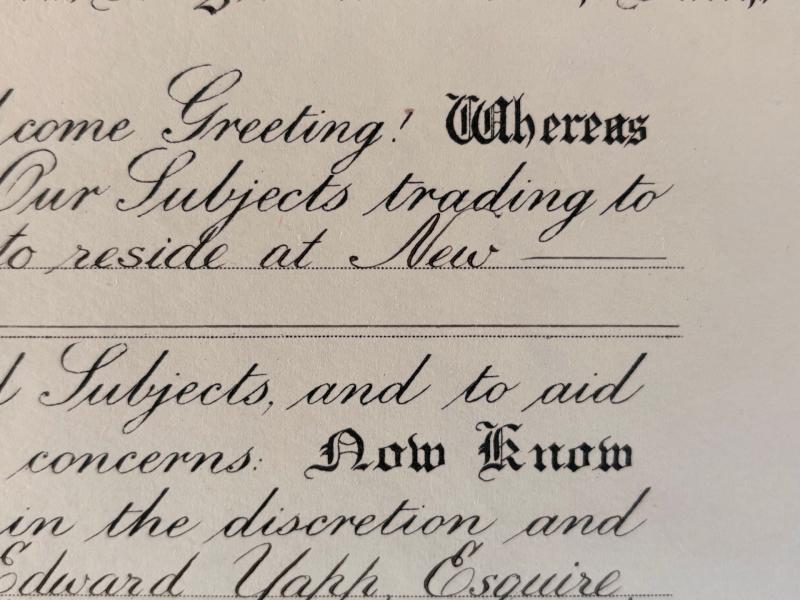 come Greeting! Whereas
Our Subjects trading to
to reside at New
Subjects, and to aid
concerns: Now Know
in the discretion and
Edward Yapp, Esquire,